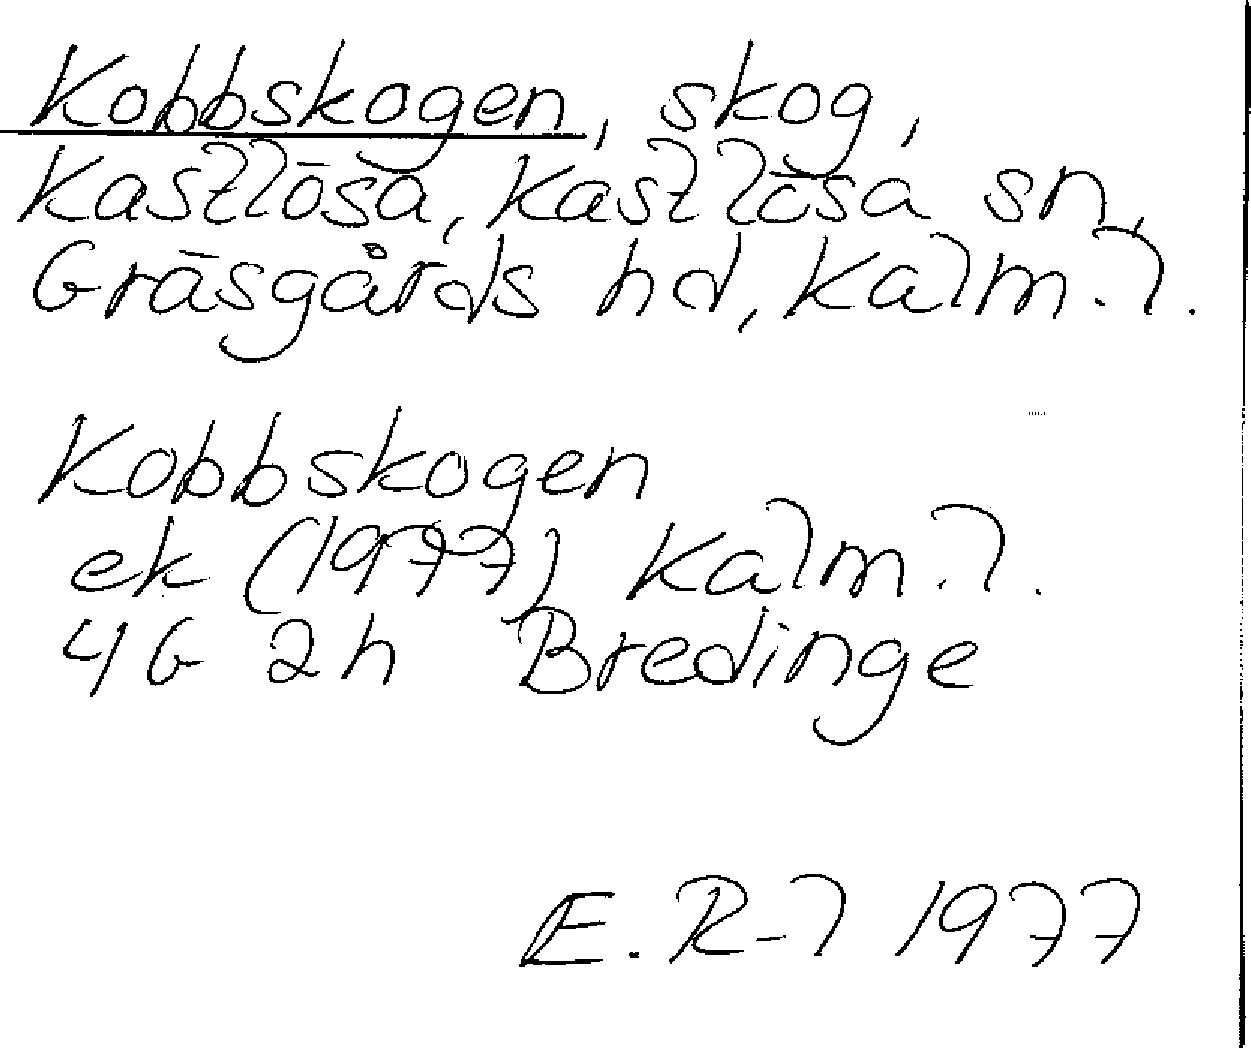 Kobbskogen, skog,
Kastlösa, Kastlösa sn,
Gräsgårds hd, Kalm. l.
Kobbskogen
ek (1977) Kalm. l.
4G 2h Bredinge
E. R-l 1977